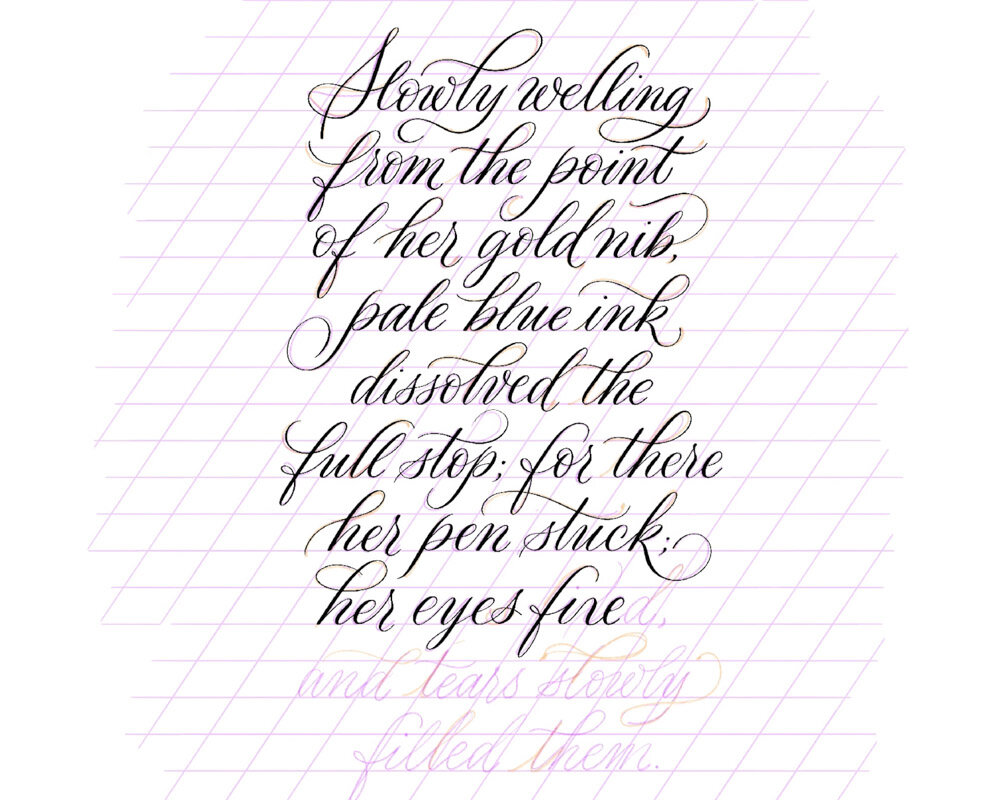 Slowly welling
from the point
of her gold nib,
pale blue ink
dissolved the
full stop; for there
her pen stuck;
her eyes fixed,
and tears slowly
filled them.